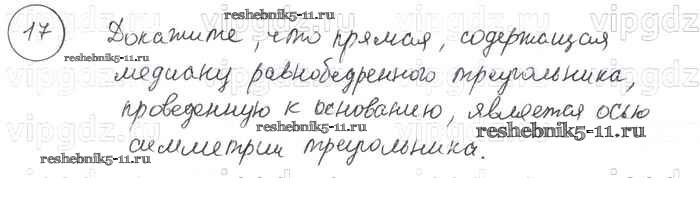 17 Докажите, что прямая, содержащая
медиану равнобедренного треугольника,
проведенную к основанию, является осью
симметрии треугольника.
reshebnik5-11.ru
reshebnik5-11.ru
reshebnik5-11.ru
reshebnik5-11.ru
reshebnik5-11.ru
reshebnik5-11.ru
vipgdz.ru